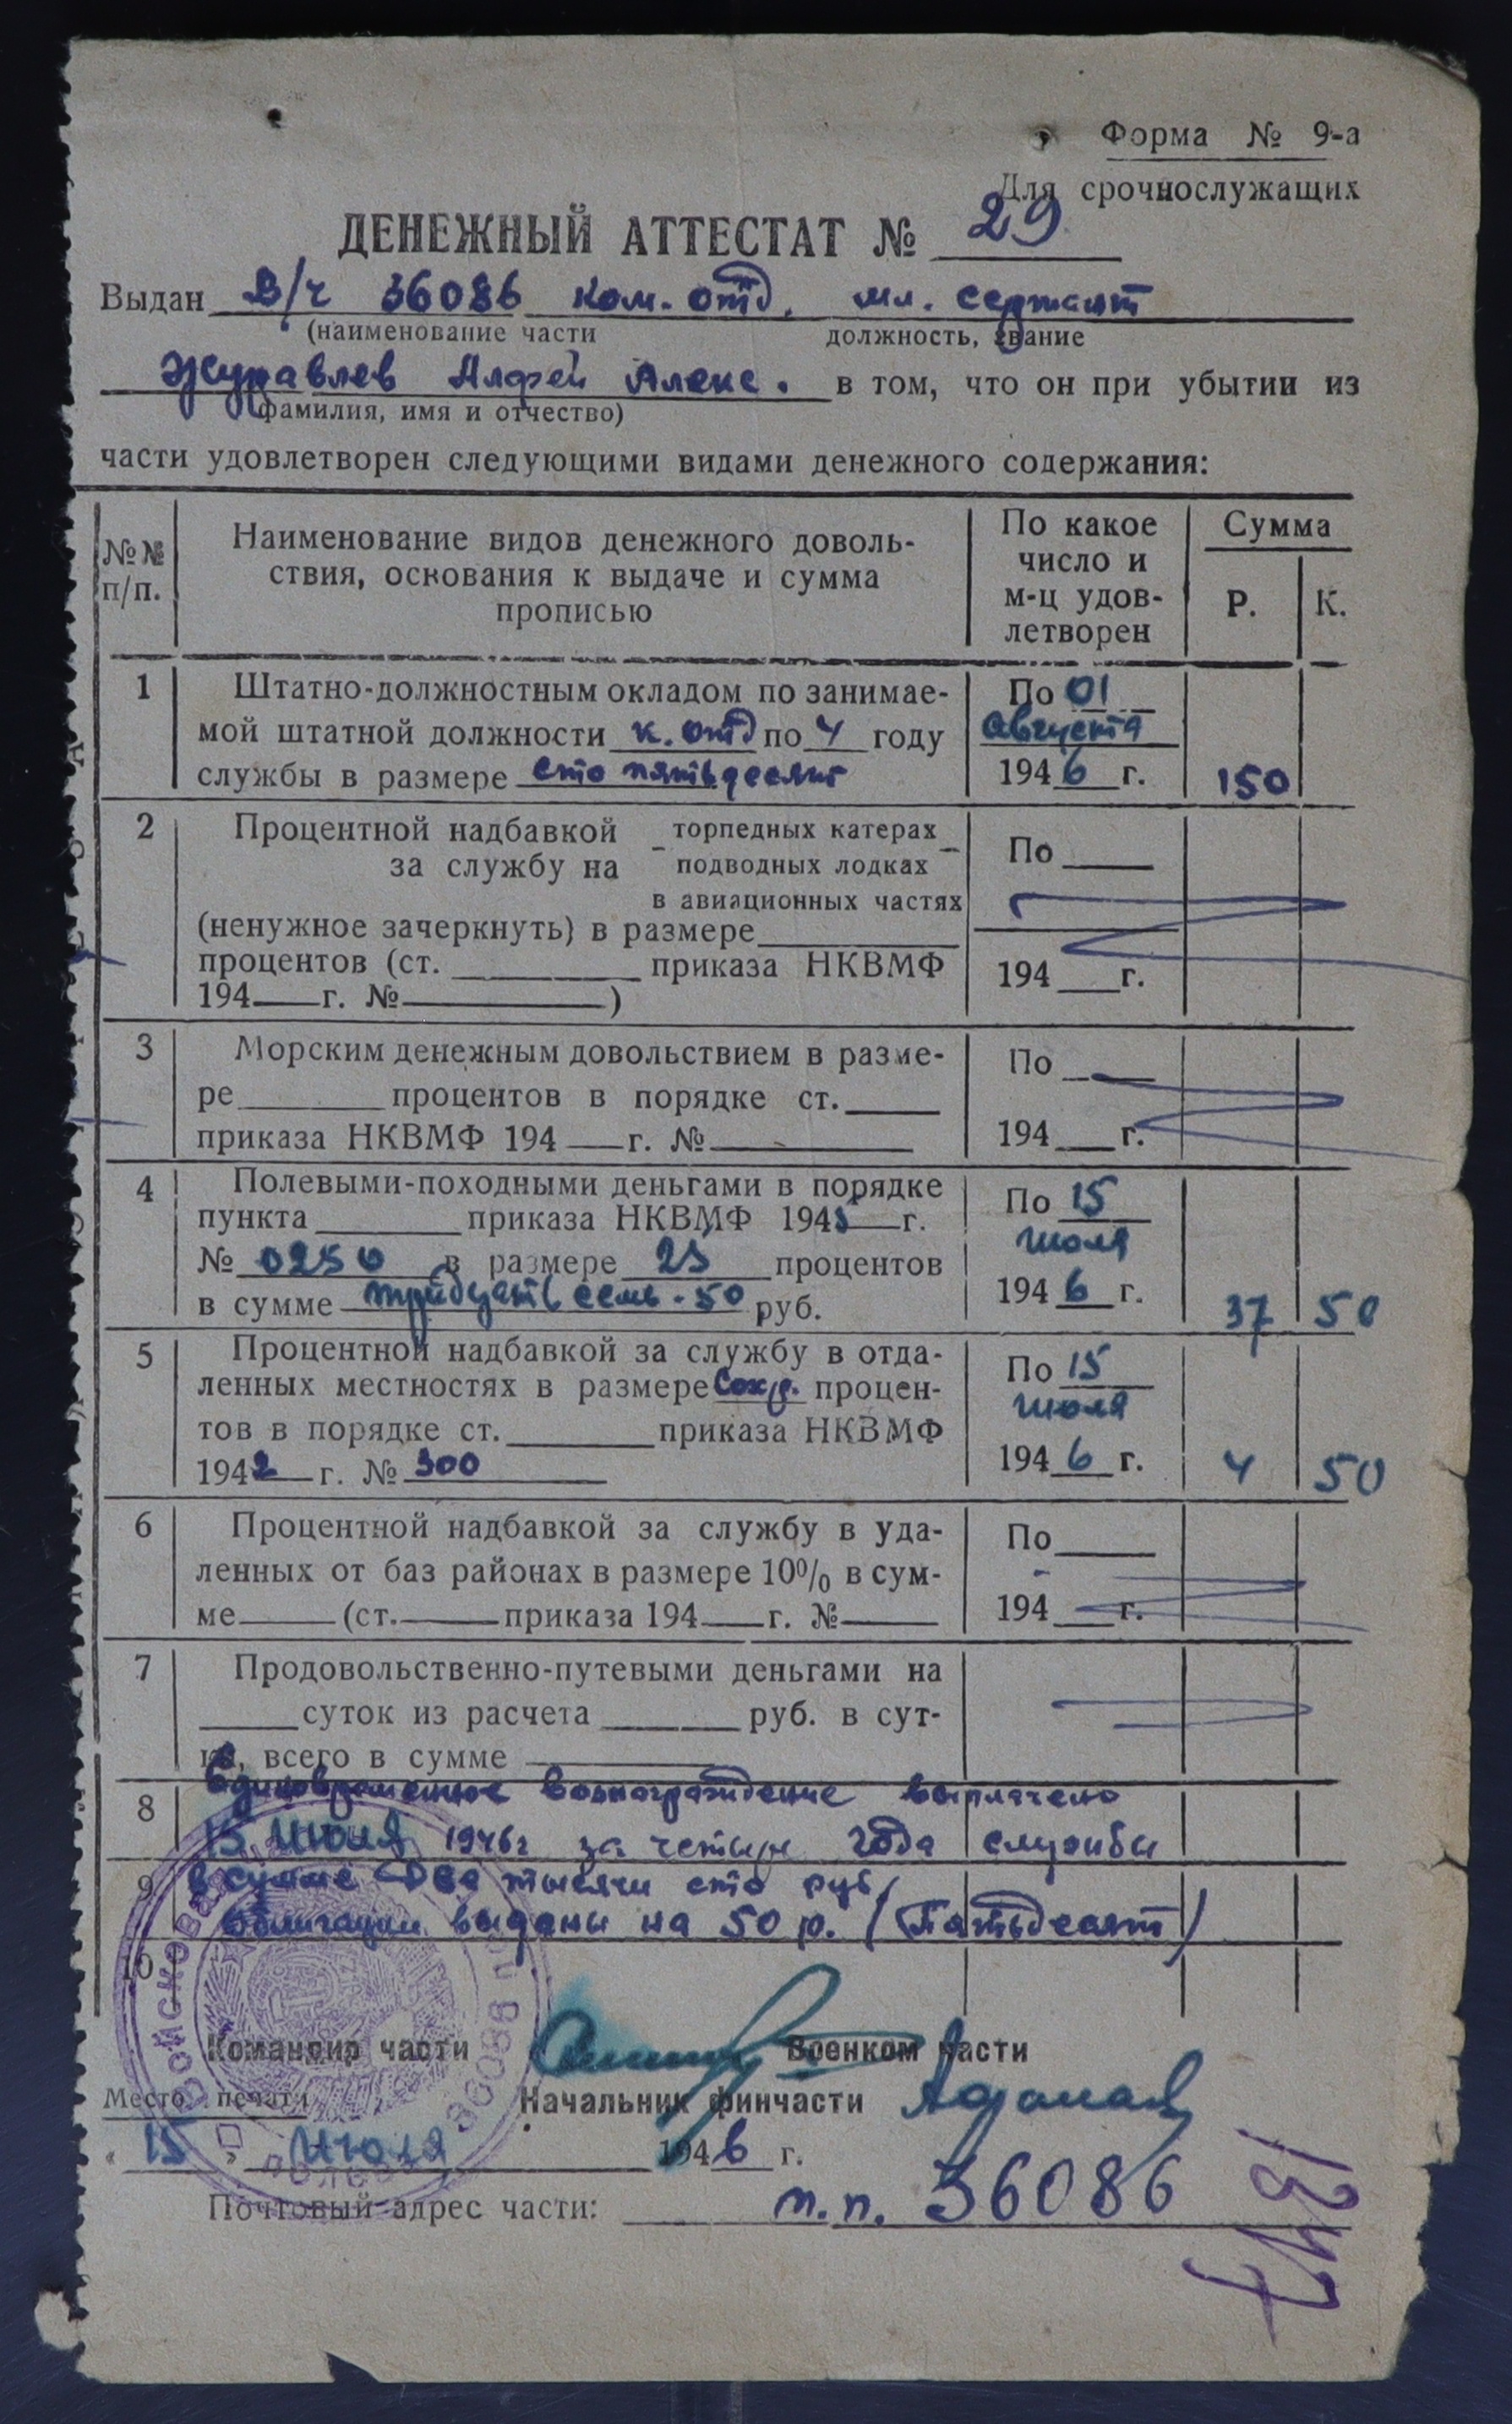 Форма № 9-а
Для срочнослужащих
ДЕНЕЖНЫЙ АТТЕСТАТ № 29
Выдан В/ч 36086 ком. отд. мл. сержант
(наименование части должность, звание
Журавлев Алфей Алекс. в том, что он при убытии из
фамилия, имя и отчество)
части удовлетворен следующими видами денежного содержания:
№№ п/п.
Наименование видов денежного доволь-
ствия, основания к выдаче и сумма
прописью
По какое
число и
м-ц удов-
летворен
Сумма
Р. К.
1 Штатно-должностным окладом по занимае- По 01
мой штатной должности к. отд по 4 году августа
службы в размере сто пятьдесят 1946 г. 150
2 Процентной надбавкой торпедных катерах
за службу на подводных лодках По
в авиационных частях
(ненужное зачеркнуть) в размере
процентов (ст. приказа НКВМФ 194 г.
194 г. № )
3 Морским денежным довольствием в разме- По
ре процентов в порядке ст.
приказа НКВМФ 194 г. № 194 г.
4 Полевыми-походными деньгами в порядке По 15
пункта приказа НКВМФ 1945 г. июля
№ 0250 в размере 25 процентов
в сумме тридцать семь - 50 руб. 1946 г. 37 50
5 Процентной надбавкой за службу в отда- По 15
ленных местностях в размере Сохр. процен- июля
тов в порядке ст. приказа НКВМФ
1942 г. № 300 1946 г. 4 50
6 Процентной надбавкой за службу в уда- По
ленных от баз районах в размере 10% в сум-
ме (ст. приказа 194 г. № 194 г.
7 Продовольственно-путевыми деньгами на
суток из расчета руб. в сут-
ки, всего в сумме
Единовременное вознаграждение выплачено
8 15 Июля 1946г за четыре года службы
9 в сумме Две тысячи сто руб.
облигации выданы на 50 р. (Пятьдесят)
10
Командир части Военком части
Место печати Начальник финчасти
« 15 » Июля 1946 г.
Почтовый адрес части: п.п. 36086
1347